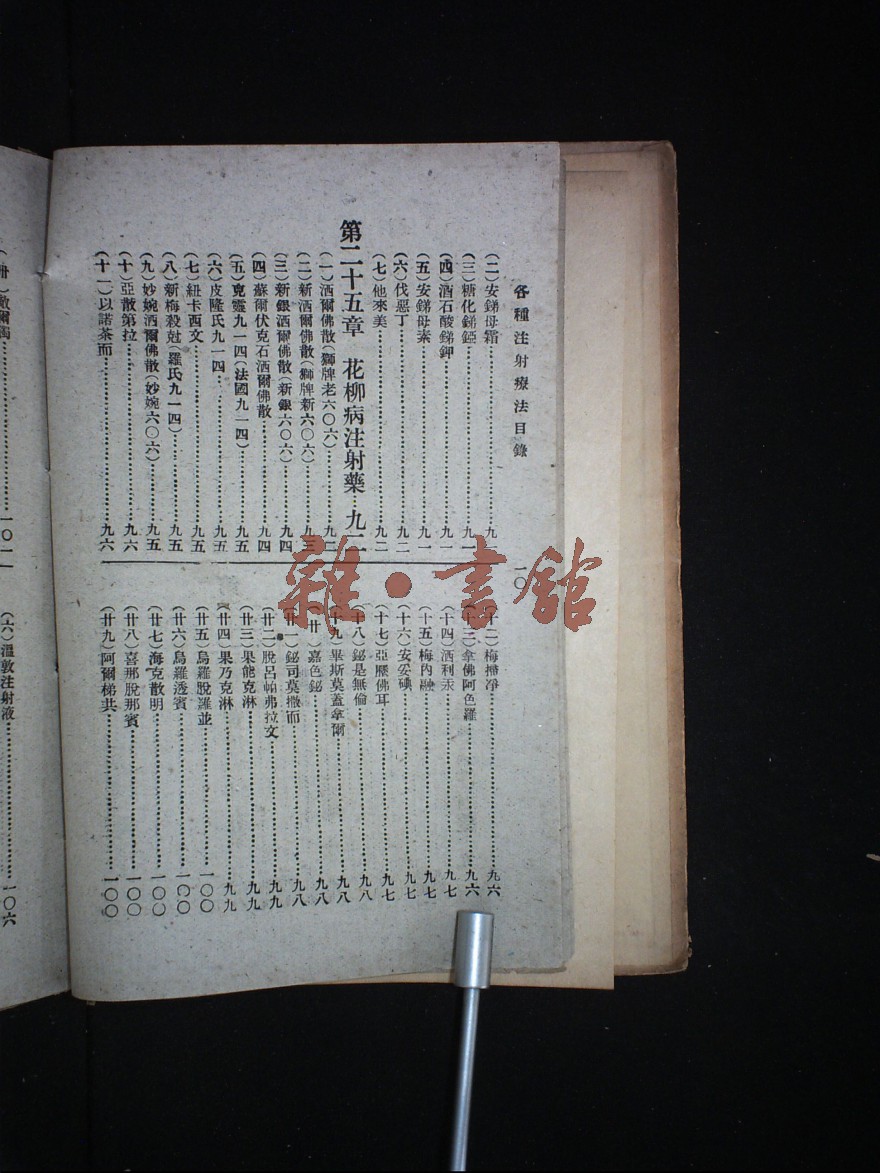 各種注射療法目錄
一〇
(二)安銻母霜……九一
(三)糖化銻鋞……九一
(四)酒石酸銻鉀……九一
(五)安銻母素……九一
(六)伐惡丁……九二
(七)他來美……九二
第二十五章 花柳病注射藥…九二
(一)洒爾佛散(獅牌老六〇六)……九二
(二)新洒爾佛散(獅牌新六〇六)……九三
(三)新銀洒爾佛散(新銀六〇六)……九四
(四)蘇爾伏克石洒爾佛散……九四
(五)克靈九一四(法國九一四)……九五
(六)皮隆氏九一四……九五
(七)紐卡西文……九五
(八)新梅殺尅(羅氏九一四)……九五
(九)妙婉洒爾佛散(妙婉六〇六)……九五
(十)亞散第拉……九六
(十一)以諾茶而……九六
(十二)梅掃淨……九六
(十三)拿佛阿色羅……九六
(十四)洒利汞……九七
(十五)梅內融……九七
(十六)安妥碘……九七
(十七)亞壓佛耳……九七
(十八)鉍是無倫……九八
(十九)畢斯莫蓋拿爾……九八
(廿)嘉色鉍……九八
(廿一)鉍司莫撒而……九八
(廿二)脫呂帕弗拉文……九九
(廿三)果能克淋……九九
(廿四)果乃克淋……九九
(廿五)烏羅脫羅並……一〇〇
(廿六)烏羅透賓……一〇〇
(廿七)海克散明……一〇〇
(廿八)喜那脫那賓……一〇〇
(廿九)阿爾梯共……一〇〇
……一〇一
(六)溫敦注射液……一〇六
雜·書館